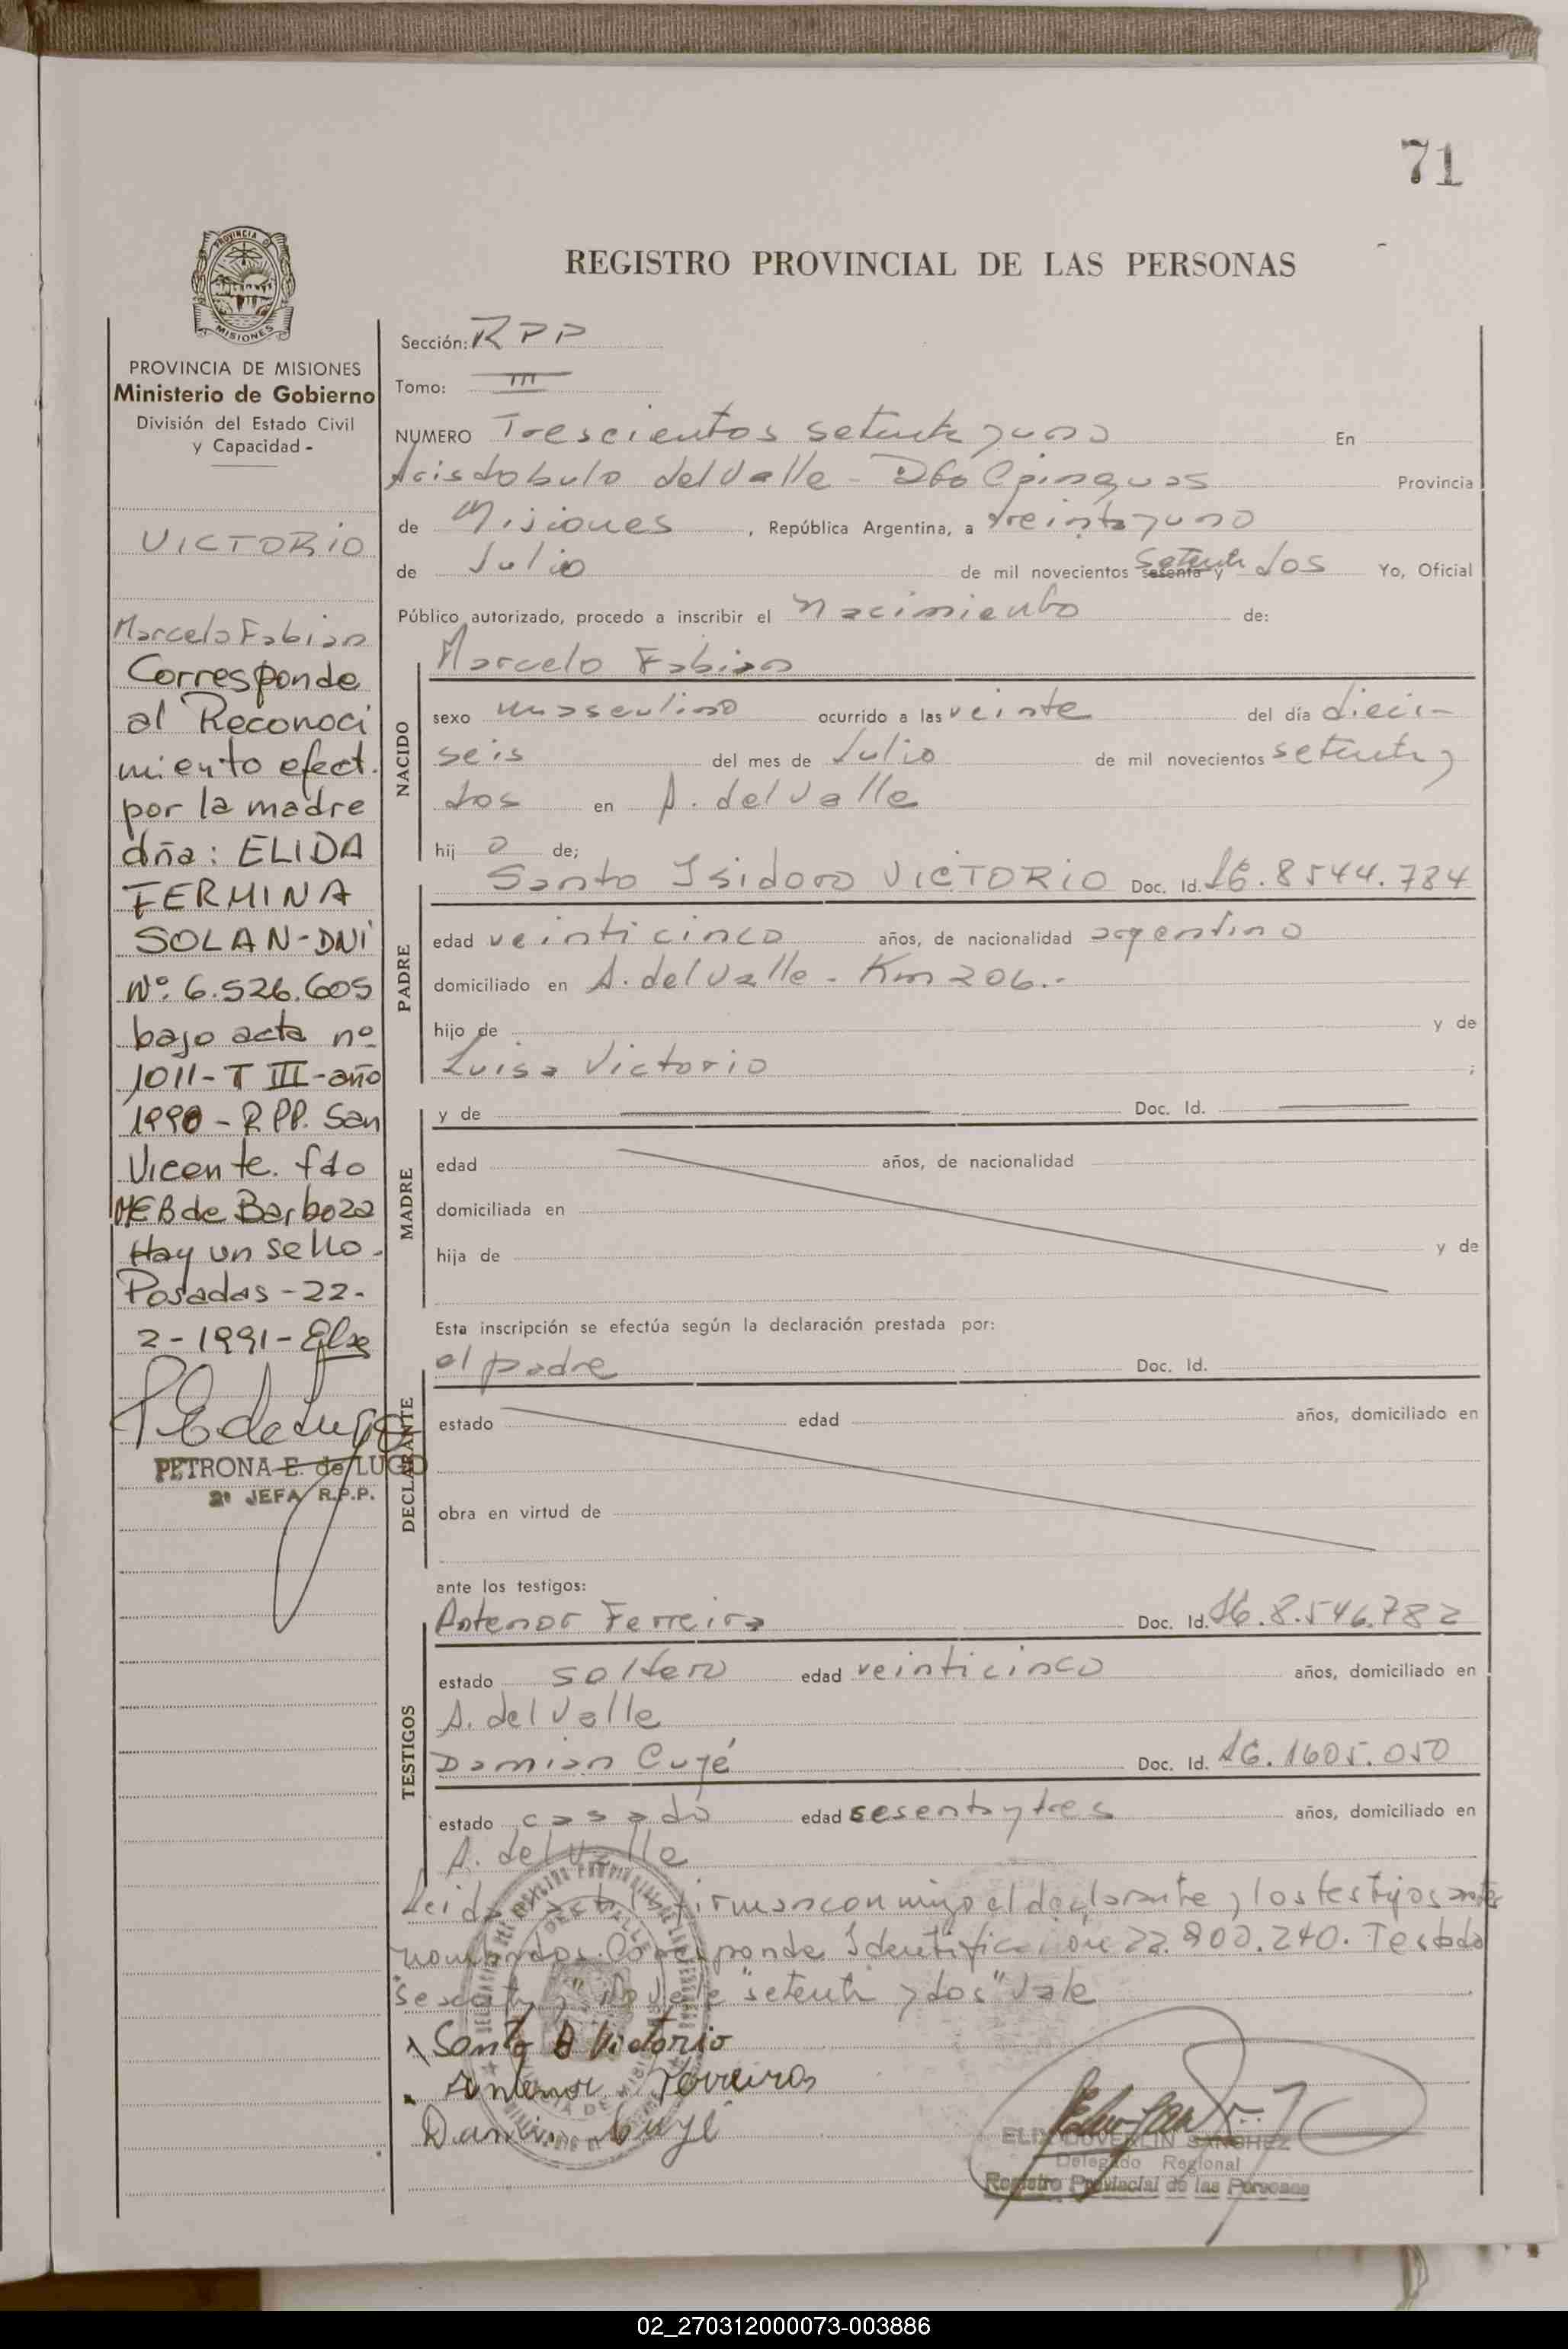 71
PROVINCIA DE
MISIONES
REGISTRO PROVINCIAL DE LAS PERSONAS
PROVINCIA DE MISIONES
Ministerio de Gobierno
División del Estado Civil
y Capacidad -
VICTORIO
Marcelo Fabian
Corresponde
al Reconoci
miento efect.
por la madre
dña: ELIDA
FERMINA
SOLAN-DNI
Nº. 6.526.605
bajo acta nº
1011-T III-año
1990-RPP. San
Vicente. fdo
MEB de Barboza
Hay un sello.
Posadas-22-
2-1991-
PETRONA E. de LUGO
2ª JEFA R.P.P.
Sección: RPP
Tomo: III
NUMERO Trescientos setenta y uno En
Aristobulo del Valle - Dto Cainguas Provincia
de Misiones, República Argentina, a treinta y uno
de Julio de mil novecientos sesenta y setenta dos Yo, Oficial
Público autorizado, procedo a inscribir el nacimiento de:
Marcelo Fabian
NACIDO
sexo masculino ocurrido a las veinte del día dieci-
seis del mes de Julio de mil novecientos setenta y
dos en A. del Valle
hij o de;
Santo Isidoro VICTORIO Doc. Id. 16.8544.784
PADRE
edad veinticinco años, de nacionalidad argentino
domiciliado en A. del Valle - Km 206.-
hijo de y de
Luisa Victorio ;
MADRE
y de Doc. Id.
edad años, de nacionalidad
domiciliada en
hija de y de
Esta inscripción se efectúa según la declaración prestada por:
el padre Doc. Id.
DECLARANTE
estado edad años, domiciliado en
obra en virtud de
ante los testigos:
TESTIGOS
Antenor Ferreira Doc. Id. 16.8.546.782
estado soltero edad veinticinco años, domiciliado en
A. del Valle
Damian Cuyé Doc. Id. 16.1605.050
estado casado edad sesenta y tres años, domiciliado en
A. del Valle
Leida firman conmigo el declarante y los testigos antes
nombrados. Corresponde Identificación 22.800.240. Testado
"sesenta y" no vale "setenta y dos" Vale
Santo Victorio
Antenor Ferreira
Damian Cuyé
ELIX DUVERLIN SANCHEZ
Delegado Regional
Registro Provincial de las Personas
02_270312000073-003886